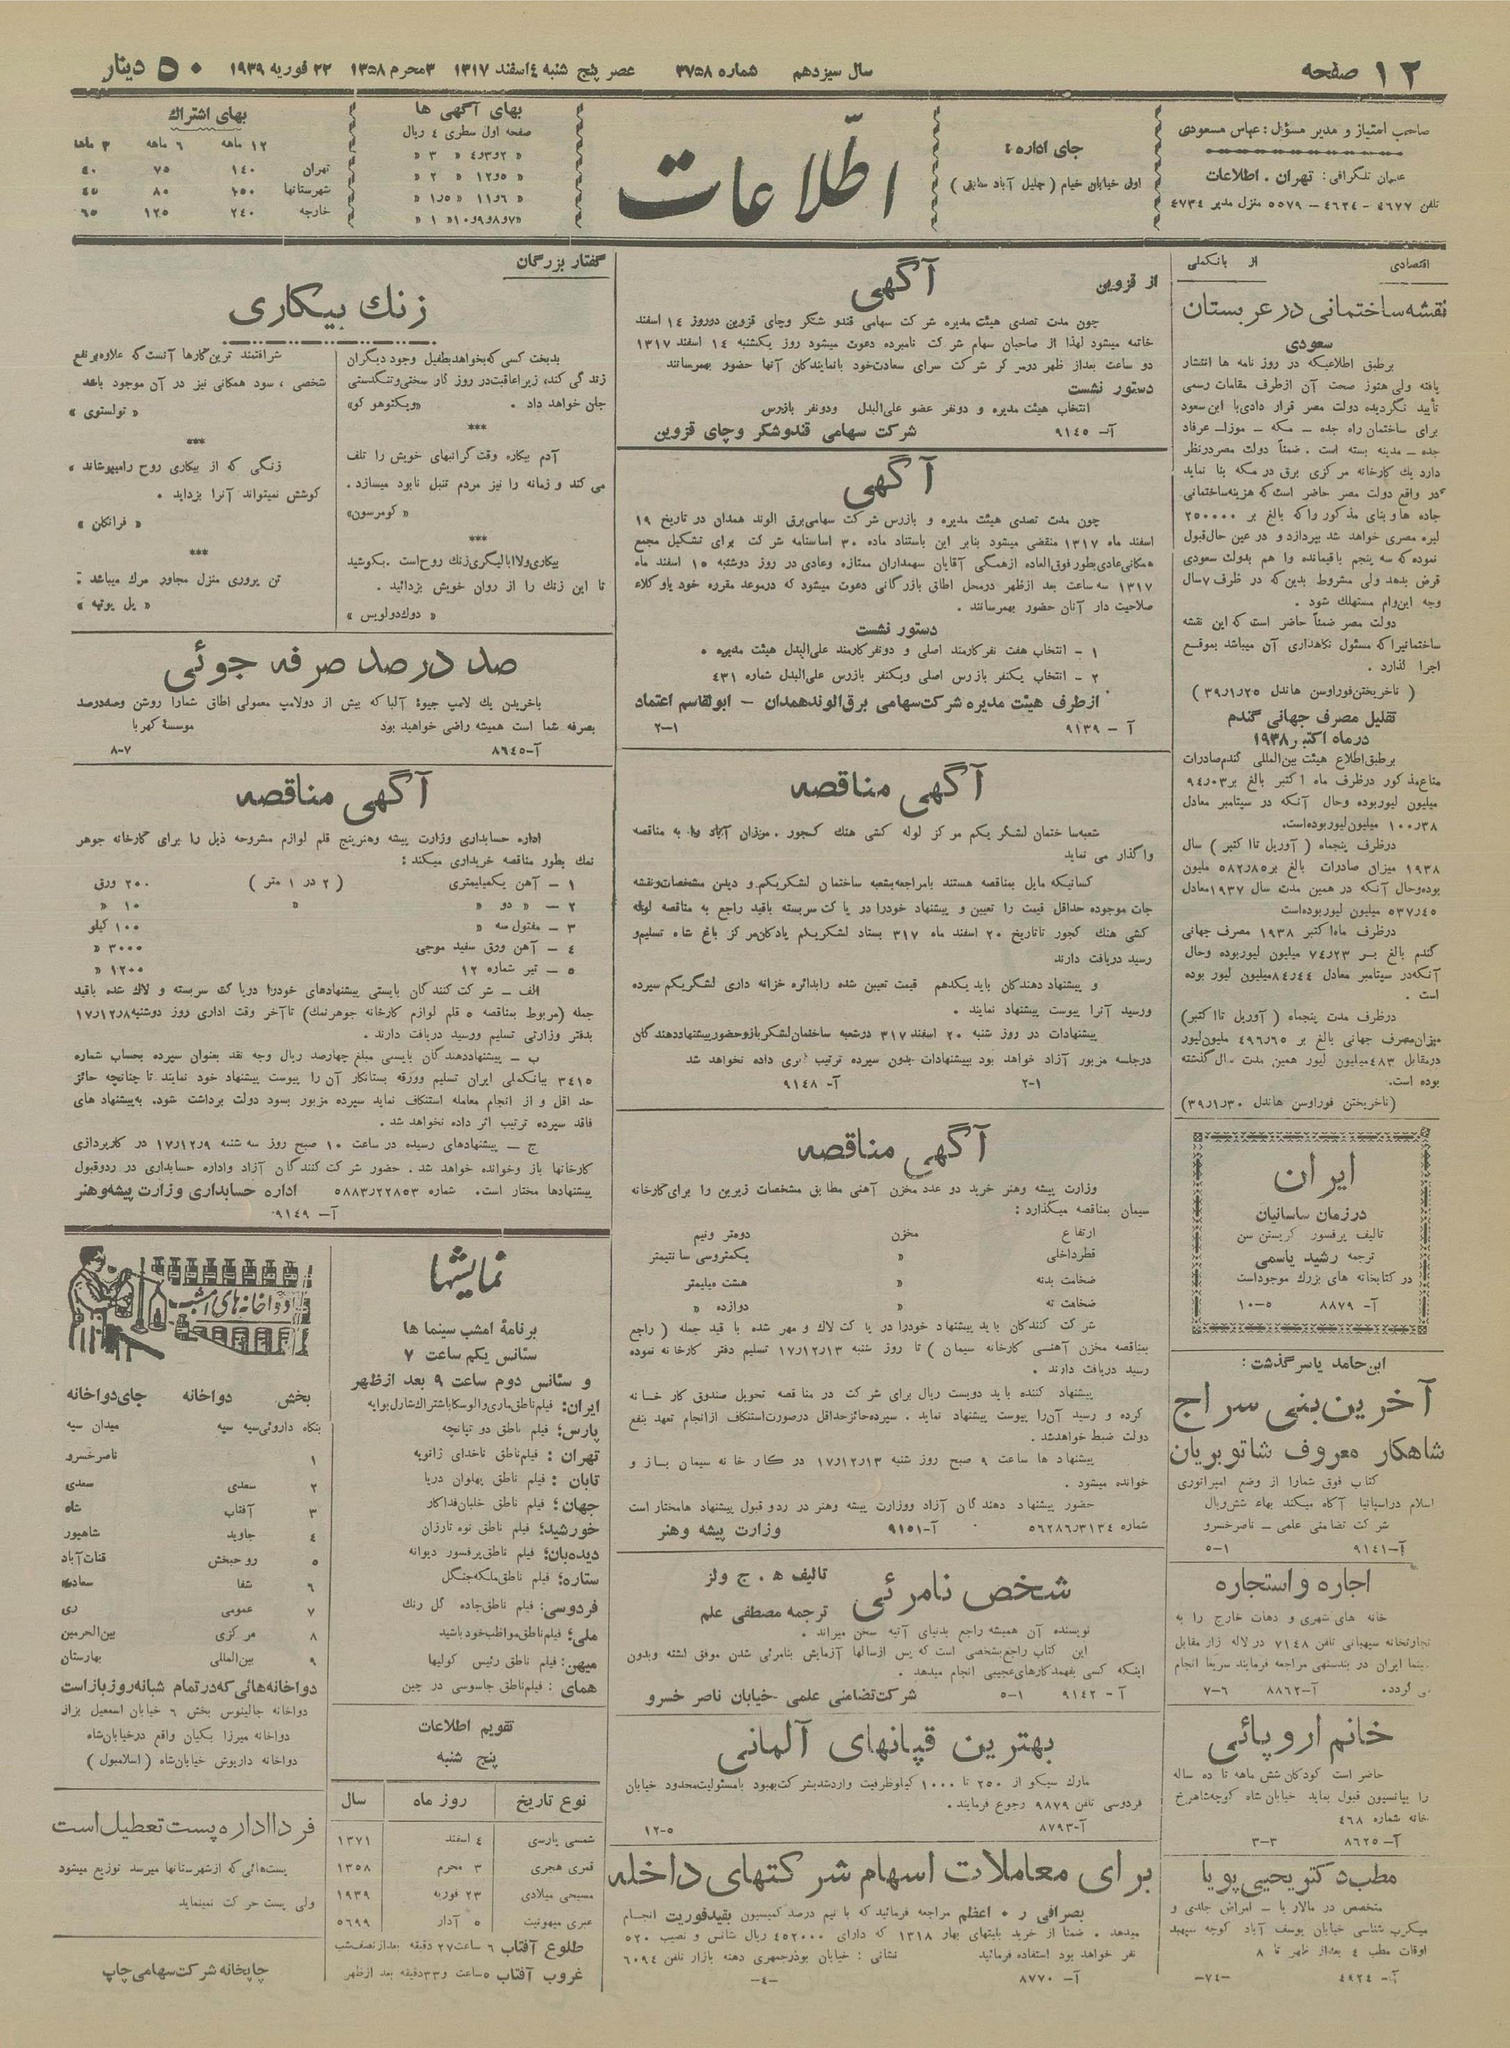 ۱۲ صفحه
سال سیزدهم شماره ۳۷۵۸ عصر پنج شنبه ٤ اسفند ۱۳۱۷ ۳ محرم ۱۳۵۸ ۲۲ فوریه ۱۹۳۹ ۵۰ دینار
صاحب امتیاز و مدیر مسؤل : عباس مسعودی
عنوان تلگرافی : تهران . اطلاعات
تلفن ٤٦٧٧ - ٤٦٢٤ - ٥٥٧٩ منزل مدیر ٤٧٣٤
جای اداره :
اول خیابان خیام ( جلیل آباد سابق )
اطّلاعات
بهای آگهی ها
صفحه اول سطری ٤ ریال
« ۲و۳و٤ « ۳ «
« ۵و۱۲ « ۲ «
« ٦و۱۱ « ۱٫۵ «
«۷و۸و۹و۱۰« ۱ «
بهای اشتراك
۱۲ ماهه ٦ ماهه ۳ ماهه
تهران ۱٤۰ ۷۵ ٤۰
شهرستانها ۱۵۰ ۸۰ ٤۵
خارجه ۲٤۰ ۱۲۵ ٦۵
اقتصادی از بانكملی
نقشه ساختمانی در عربستان
سعودی
برطبق اطلاعیکه در روز نامه ها انتشار
یافته ولی هنوز صحت آن ازطرف مقامات رسمی
تأیید نگردیده دولت مصر قرار دادی با ابن سعود
برای ساختمان راه جده ــ مکه ــ موزا ــ عرفاد
جده ــ مدینه بسته است . ضمناً دولت مصر درنظر
دارد یك کارخانه مرکزی برق در مکه بنا نماید
در واقع دولت مصر حاضر است که هزینه ساختمانی
جاده ها و بنای مذکور را که بالغ بر ۲۵۰۰۰۰
لیره مصری خواهد شد بپردازد و در عین حال قبول
نموده که سه پنجم باقیمانده وا هم بدولت سعودی
قرض بدهد ولی مشروط بدین که در ظرف ۷ سال
وجه این وام مستهلك شود .
دولت مصر ضمناً حاضر است که این نقشه
ساختمانیرا که مسئول نگاهداری آن میباشد بموقع
اجرا لذارد .
( ناخریختن فوراوسن هاندل ۳۹٫۱٫۲۵ )
تقلیل مصرف جهانی گندم
درماه اکتبر ۱۹۳۸
برطبق اطلاع هیئت بین المللی گندم صادرات
متاع مذکور درظرف ماه اکتبر بالغ بر ۹٤٫۰۳
میلیون لیور بوده وحال آنکه در سپتامبر معادل
۱۰۰٫۳۸ میلیون لیور بوده است.
درظرف پنجماه ( آوریل تا اکتبر ) سال
۱۹۳۸ میزان صادرات بالغ بر ۵۸۲٫۸۵ ملیون
بوده وحال آنکه در همین مدت سال ۱۹۳۷ معادل
۵۳۷٫٤۵ میلیون لیور بوده است
درظرف ماه اکتبر ۱۹۳۸ مصرف جهانی
گندم بالغ بــر ۷٤٫۲۳ میلیون لیور بوده وحال
آنکه در سپتامبر معادل ۸٤٫٤٤ میلیون لیور بوده
است .
درظرف مدت پنجماه ( آوریل تا اکتبر)
میزان مصرف جهانی بالغ بر ٤۹٦٫٦۵ ملیون لیور
درمقابل ٤۸۳ میلیون لیور همین مدت سال گذشته
بوده است.
(ناخریختن فوراوسن هاندل ۳۹٫۱٫۳۰)
ایران
درزمان ساسانیان
تالیف پرفسور کریستن سن
ترجمه رشید یاسمی
در کتابخانه های بزرك موجوداست
آ- ۸۸۷۹ ۵-۱۰
ابن حامد یا سرگذشت :
آخرین بنی سراج
شاهکار معروف شاتو بریان
کتاب فوق شمارا از وضع امپراتوری
اسلام دراسپانیا آگاه میکند بهاء شش ریال
شرکت تضامنی علمی ــ ناصر خسرو
آ-۹۱٤۱ ۱-۵
اجاره و استجاره
خانه های شهری و دهات خارج را به
تجارتخانه سپهبانی تلفن ۷۱٤۸ در لاله زار مقابل
سینما ایران در بندسهی مراجعه فرمایند سریعاً انجام
می گردد. آ-۸۸٦۲ ٦-۷
خانم اروپائی
حاضر است کودکان شش ماهه تا ده ساله
را بپانسیون قبول نماید خیابان شاه کوچه شاهرخ
خانه شماره ٤٦۸
آ- ۸٦۲۵ ۳-۳
مطب دکتر یحیی پویا
متخصص در مالاریا ــ امراض جلدی و
میکرب شناسی خیابان یوسف آباد کوچه سپهبد
اوقات مطب ٤ بعداز ظهر تا ۸
آ- ٤۹۲٤ -۷٤-
از قزوین آگهی
چون مدت تصدی هیئت مدیره شرکت سهامی قندو شکر وچای قزوین در روز ۱٤ اسفند
خاتمه میشود لهذا از صاحبان سهام شرکت نامبرده دعوت میشود روز یکشنبه ۱٤ اسفند ۱۳۱۷
دو ساعت بعداز ظهر درمرکز شرکت سرای سعادت خود یا نمایندگان آنها حضور بهمرسانند
دستور نشست
انتخاب هیئت مدیره و دونفر عضو علی البدل ودونفر بازرس
آ- ۹۱٤۵ شرکت سهامی قندوشکر وچای قزوین
آگهی
چون مدت تصدی هیئت مدیره و بازرس شرکت سهامی برق الوند همدان در تاریخ ۱۹
اسفند ماه ۱۳۱۷ منقضی میشود بنابر این باستناد ماده ۳۰ اساسنامه شرکت برای تشکیل مجمع
همگانی عادی بطور فوق العاده ازهمگی آقایان سهمداران ممتازه وعادی در روز دوشنبه ۱۵ اسفند ماه
۱۳۱۷ سه ساعت بعد ازظهر درمحل اطاق بازرگانی دعوت میشود که درموعد مقرره خود یاوکلاء
صلاحیت دار آنان حضور بهمرسانند .
دستور نشست
۱ - انتخاب هفت نفرکارمند اصلی و دونفرکارمند علی البدل هیئت مدیره .
۲ - انتخاب یکنفر بازرس اصلی ویکنفر بازرس علی البدل شماره ٤۳۱
ازطرف هیئت مدیره شرکت سهامی برق الوندهمدان ــ ابوالقاسم اعتماد
آ - ۹۱۳۹ ۱-۲
آگهی مناقصه
شعبه ساختمان لشگر یکم مرکز لوله کشی هنك کجور . مرزان آباد را به مناقصه
واگذار می نماید
کسانیکه مایل بمناقصه هستند بامراجعه بشعبه ساختمان لشگریکم و دیدن مشخصات ونقشه
جات موجوده حداقل قیمت را تعیین و پیشنهاد خودرا در پاکت سربسته باقید راجع به مناقصه لوله
کشی هنك کجور تا تاریخ ۲۰ اسفند ماه ۳۱۷ بستاد لشگریکم پادگان مرکز باغ شاه تسلیم و
رسید دریافت دارند
و پیشنهاد دهندگان باید یکدهم قیمت تعیین شده رابدائره خزانه داری لشگریکم سپرده
ورسید آنرا پیوست پیشنهاد نمایند .
پیشنهادات در روز شنبه ۲۰ اسفند ۳۱۷ درشعبه ساختمان لشگر بازو حضور پیشنهاددهندگان
درجلسه مزبور آزاد خواهد بود بپیشنهادات بدون سپرده ترتیب اثری داده نخواهد شد
۱-۲ آ- ۹۱٤۸
آگهی مناقصه
وزارت پیشه وهنر خرید دو عدد مخزن آهنی مطابق مشخصات زیرین را برای کارخانه
سیمان بمناقصه میگذارد :
ارتفاع مخزن دومتر ونیم
قطرداخلی « یکمتر و سی سانتیمتر
ضخامت بدنه « هشت میلیمتر
ضخامت ته « دوازده «
شرکت کنندگان باید پیشنهاد خودرا در پاکت لاك و مهر شده با قید جمله ( راجع
بمناقصه مخزن آهنی کارخانه سیمان ) تا روز شنبه ۱۷٫۱۲٫۱۳ تسلیم دفتر کارخانه نموده
رسید دریافت دارند .
پیشنهاد کننده باید دویست ریال برای شرکت در مناقصه تحویل صندوق کارخانه
کرده و رسید آن را پیوست پیشنهاد نماید . سپرده حائز حداقل درصورت استنکاف ازانجام تعهد بنفع
دولت ضبط خواهدشد.
پیشنهاد ها ساعت ۹ صبح روز شنبه ۱۷٫۱۲٫۱۳ در کارخانه سیمان باز و
خوانده میشود .
حضور پیشنهاد دهندگان آزاد ووزارت پیشه وهنر در ردو قبول پیشنهاد ها مختار است
شماره ۵٦۲۸٦٫۳۱۳٤ آ-۹۱۵۱ وزارت پیشه وهنر
شخص نامرئی تالیف ه . ج ولز
ترجمه مصطفی علم
نویسنده آن همیشه راجع بدنیای آتیه سخن میراند .
این کتاب راجع بشخصی است که پس ازسالها آزمایش بنامرئی شدن موفق گشته وبدون
اینکه کسی بفهمد کارهای عجیبی انجام میدهد .
آ - ۹۱٤۲ ۱-۵ شرکت تضامنی علمی - خیابان ناصر خسرو
بهترین قپانهای آلمانی
مارك سیکو از ۲۵۰ تا ۱۰۰۰ کیلو ظرفیت وارد شد بشرکت بهبود با مسئولیت محدود خیابان
فردوسی تلفن ۹۸۷۹ رجوع فرمایند .
آ-۸۷۹۳ ۵-۱۲
برای معاملات اسهام شرکتهای داخله
بصرافی ر . اعظم مراجعه فرمائید که با نیم درصد کمیسیون بقیدفوریت انجام
میدهد . ضمناً از خرید بلیتهای بهار ۱۳۱۸ که دارای ٤۵۲۰۰۰ ریال شانس و نصیب ۵۲۰
نفر خواهد بود استفاده فرمائید نشانی : خیابان بوذرجمهری دهنه بازار تلفن ٦۰۹٤
آ- ۸۷۷۰ -٤-
گفتار بزرگان
زنك بیکاری
بدبخت کسی که بخواهد بطفیل وجود دیگران
زندگی کند، زیراعاقبت در روزگار سختی و تنگدستی
جان خواهد داد . «ویکتوهوکو»
***
آدم بیکاره وقت گرانبهای خویش را تلف
می کند و زمانه را نیز مردم تنبل نابود میسازد .
« کومرسون»
***
بیکاری ولا ابالیگری زنك روح است . بکوشید
تا این زنك را از روان خویش بزدائید .
« دوك دولویس »
شرافتمند ترین کارها آنست که علاوه بر نفع
شخصی ، سود همگانی نیز در آن موجود باشد
« تولستوی »
***
زنگی که از بیکاری روح رامیپوشاند ،
کوشش نمیتواند آنرا بزداید .
« فرانکلن »
***
تن پروری منزل مجاور مرك میباشد :
« پل یوتپه »
صد درصد صرفه جوئی
باخریدن یك لامپ جیوۀ آلبا که بیش از دولامپ معمولی اطاق شمارا روشن وصددرصد
بصرفه شما است همیشه راضی خواهید بود موسسۀ کهربا
آ-۸٦٤۵ ۷-۸
آگهی مناقصه
اداره حسابداری وزارت پیشه وهنر پنج قلم لوازم مشروحه ذیل را برای کارخانه جوهر
نمك بطور مناقصه خریداری میکند :
۱ - آهن یکمیلیمتری ( ۲ در ۱ متر ) ۲۵۰ ورق
۲ - « دو « « ۱۰ «
۳ - مفتول سه « ۱۰۰ کیلو
٤ - آهن ورق سفید موجی ۳۰۰۰ «
۵ - تیر شماره ۱۲ ۱۲۰۰ «
الف - شرکت کنندگان بایستی پیشنهادهای خودرا درپاکت سربسته و لاك شده باقید
جمله (مربوط بمناقصه ۵ قلم لوازم کارخانه جوهرنمك) تاآخر وقت اداری روز دوشنبه ۱۷٫۱۲٫۸
بدفتر وزارتی تسلیم ورسید دریافت دارند .
ب - پیشنهاددهندگان بایستی مبلغ چهارصد ریال وجه نقد بعنوان سپرده بحساب شماره
۳٤۱۵ ببانك ملی ایران تسلیم وورقه بستانکار آن را پیوست پیشنهاد خود نمایند تا چنانچه حائز
حد اقل و از انجام معامله استنکاف نماید سپرده مزبور بسود دولت برداشت شود. به پیشنهاد های
فاقد سپرده ترتیب اثر داده نخواهد شد .
ج - پیشنهادهای رسیده در ساعت ۱۰ صبح روز سه شنبه ۱۷٫۱۲٫۹ در کارپردازی
کارخانها باز وخوانده خواهد شد . حضور شرکت کنندگان آزاد واداره حسابداری در ردوقبول
پیشنهادها مختار است. شماره ۵۸۸۳٫۲۲۸۵۳ اداره حسابداری وزارت پیشه وهنر
آ- ۹۱٤۹
نمایشها
برنامۀ امشب سینما ها
سئانس یکم ساعت ۷
و سئانس دوم ساعت ۹ بعد ازظهر
ایران: فیلم ناطق ماری والوسکا باشتراك شارل بوایه
پارس: فیلم ناطق دو تپانچه
تهران : فیلم ناطق ناخدای ژانویه
تابان : فیلم ناطق پهلوان دریا
جهان: فیلم ناطق خلبان فداکار
خورشید: فیلم ناطق نوه تارزان
دیده بان: فیلم ناطق پرفسور دیوانه
ستاره: فیلم ناطق ملکه جنگل
فردوسی: فیلم ناطق جاده گل رنك
ملی: فیلم ناطق مواظب خود باشید
میهن: فیلم ناطق رئیس کولیها
همای : فیلم ناطق جاسوسی در چین
تقویم اطلاعات
پنج شنبه
نوع تاریخ روز ماه سال
شمسی پارسی ٤ اسفند ۱۳۷۱
قمری هجری ۳ محرم ۱۳۵۸
مسیحی میلادی ۲۳ فوریه ۱۹۳۹
عبری میهونیت ۵ آذار ۵٦۹۹
طلوع آفتاب ٦ ساعت ۲۷ دقیقه بعد از نصف شب
غروب آفتاب ۵ ساعت و ۳۳ دقیقه بعد ازظهر
دواخانه های امشب
بخش دواخانه جای دواخانه
بنگاه داروئی سپه سپه میدان سپه
۱ ناصرخسرو
۲ سعدی سعدی
۳ آفتاب شاه
٤ جاوید شاهپور
۵ روحبخش قنات آباد
٦ شفا سعادت
۷ عمومی ری
۸ مرکزی بین الحرمین
۹ بین المللی بهارستان
دواخانه هائی که درتمام شبانه روز باز است
دواخانه جالینوس بخش ٦ خیابان اسمعیل بزاز
دواخانه میرزا یکیان واقع درخیابان شاه
دواخانه داریوش خیابان شاه ( اسلامبول )
فردا اداره پست تعطیل است
پست هائی که از شهرستانها میرسد توزیع میشود
ولی پست حرکت نمینماید
چاپخانه شرکت سهامی چاپ